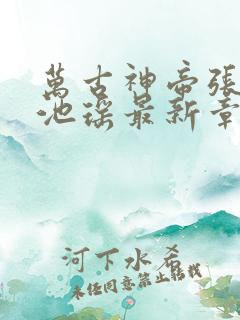 萬古神帝張
池瑤最新章
河下水希
未經同意禁止轉載